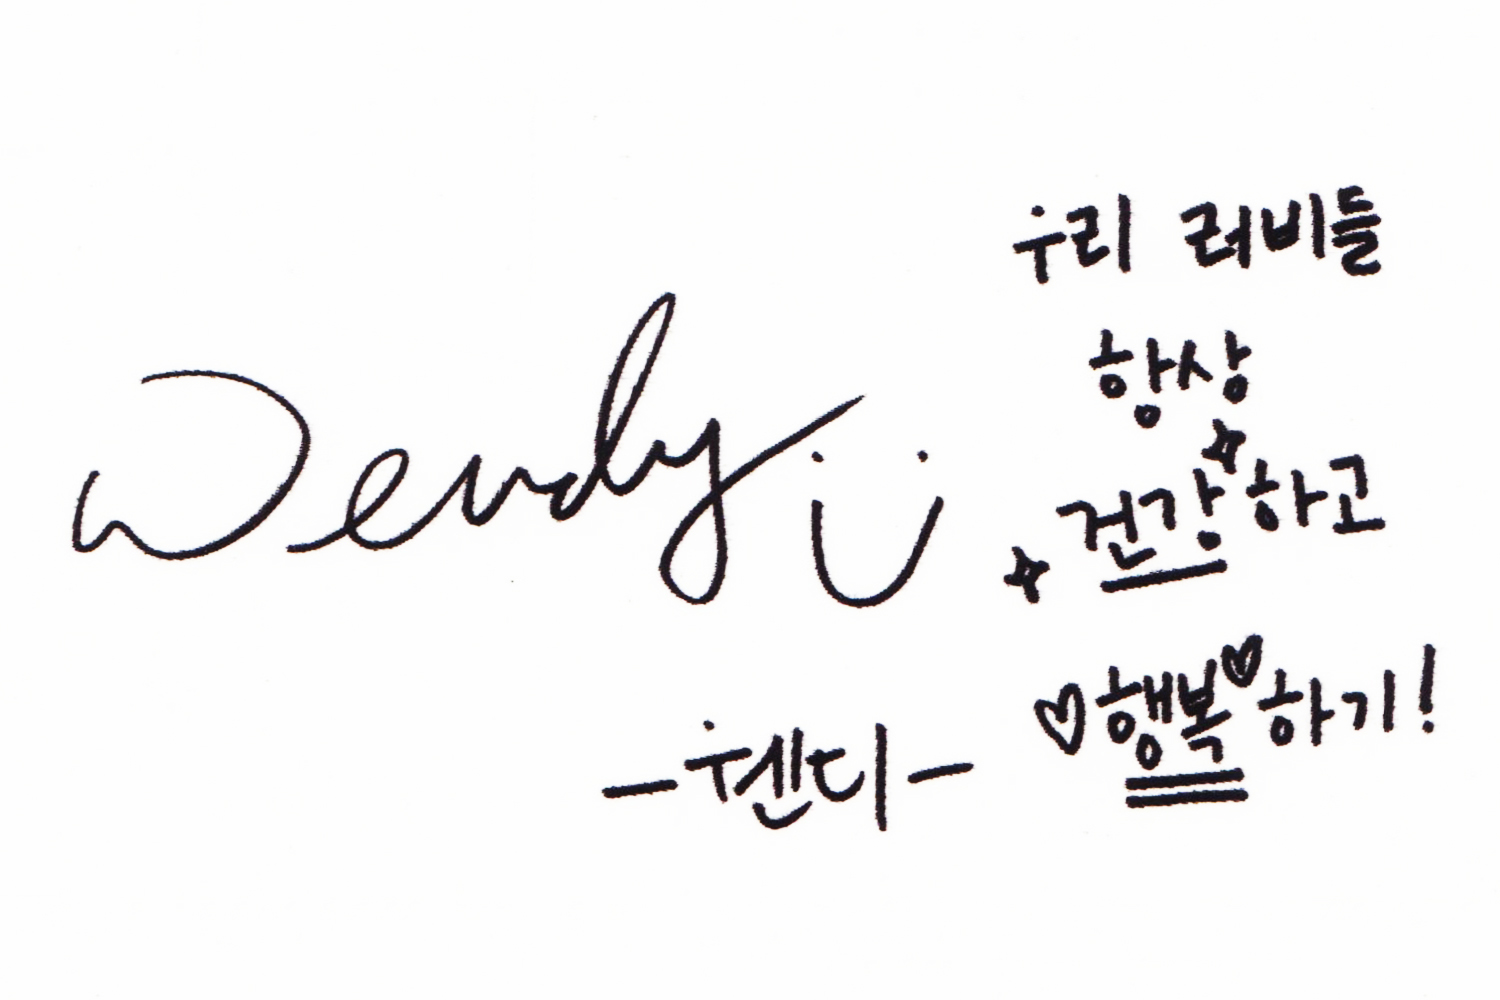 Wendy
우리 러비들
항상
건강하고
♡행복♡하기!
-웬디-